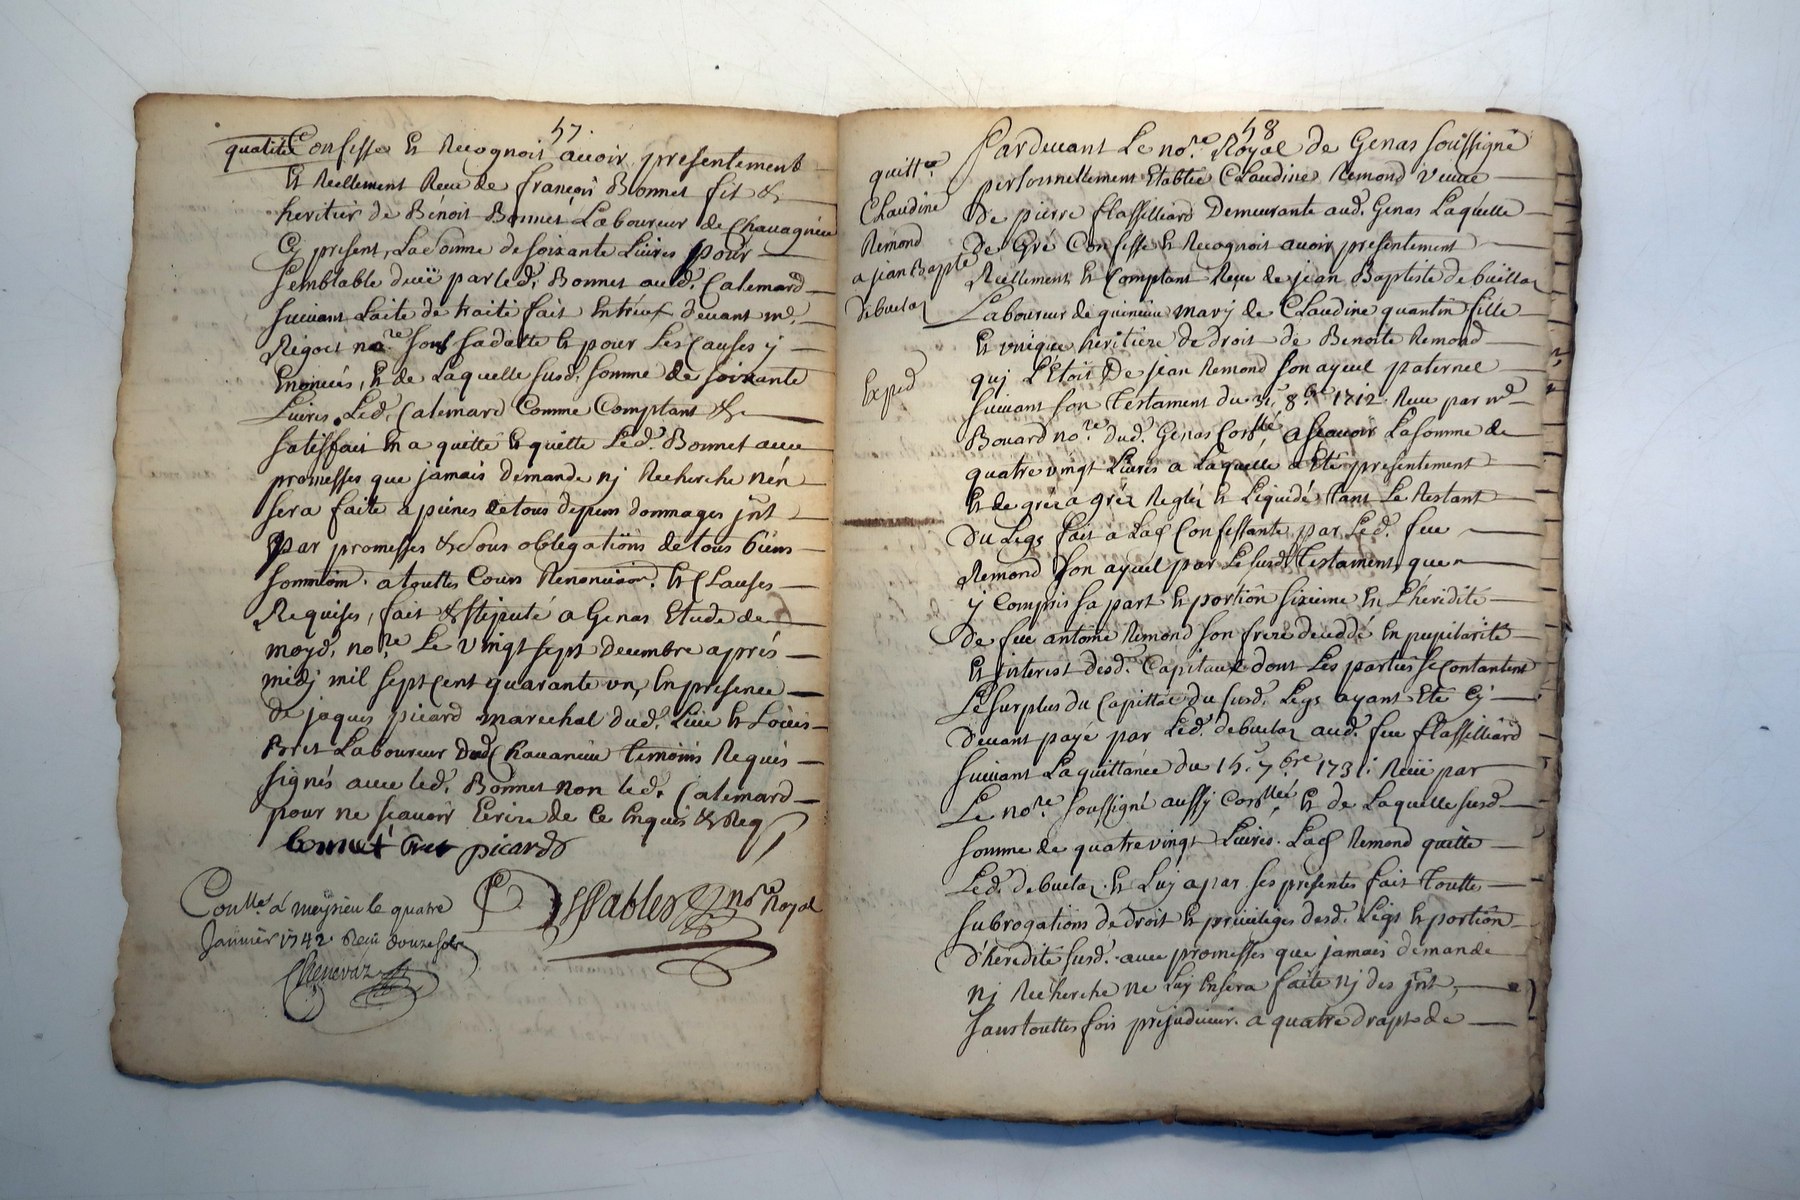 57.
qualité Confesse et Recognoit avoir presentement
et Reellement Reçu de françois Bonnet fils &
heritier de Bénoit Bonnet, Laboureur de Chavagnieu
Cy present, La somme de soixante Livres pour
semblable duë par led. Bonnet aud. Calemard
suivant L'acte de traité fait Entreux devant me.
Rigoet nore. sous sa datte et pour Les Causes y
Enoncées, et de Laquelle susd. somme de soixante
Livres Led. Calemard Comme Comptant &
satisfait En a quitté et quitte Led. Bonnet avec
promesses que jamais demande nj Recherche n'en
sera faite a peines de tous depens dommages jnt
par promesses & sous obligations de tous biens
soumission. a touttes Cours Renonciaon. et Clauses
Requises, fait & stipulé a Genas Etude de
moyd. nore. Le vingt sept decembre après
midj mil sept cent quarante un, En presence
de jaques picard marechal dud. Lieu et Loüis
Bret Laboureur dud Chavanieu temoins Requis
signés avec led. Bonnet non led. Calemard
pour ne sçavoir Ecrire de Ce Enquis & Req
bonnet Bret picard
Desssables nore Royal
Conlle. à meysieu le quatre
Janvier 1742. Reçu douze sols
Chenevaz
58
quittce.
Claudine
Remond
a jean Bapte
debuclas
Exped
Pardevant Le nore. Royal de Genas soussigné
personnellement Etablie Claudine Remond veuve
de pierre flassilliard Demeurante aud. Genas Laquelle
de Gré Confesse et Recognoit avoir presentement
Reellement et Comptant Reçu de jean Baptiste de buillas
Laboureur de quincieu mary de Claudine quantin fille
et unique heritiere de droit de Benoite Remond
qui L'Etoit De jean Remond son ayeul paternel
suivant son Testament du 31. 8bre 1712. Reçu par md
Bouard nore. dud. Genas Conllé, a scavoir La somme de
quatre vingt Livres a Laquelle a Eté presentement
et de gré a gré Reglé et Liquidé tant Le Restant
du Legs fait a Lad Confessante par Led. feu
Remond son ayeul par Le susd Testament, que
y Compris sa part et portion sixieme En L'heredité
de feu antoine Remond son frere decedé En pupilarité
et jnterest desd. Capitaux dont Les parties se Contantent
Le surplus du Capittal du susd. Legs ayant Eté Cy
devant payé par Led. debuclas aud. feu flassilliard
suivant La quittance du 15. 7bre. 1731: Reçüe par
Le nore. soussigné aussy Conllée et de Laquelle susd
somme de quatre vingt Livres. Lad Remond quitte
Led. debuclas. et Luy a par ses presentes fait Toutte
subrogations de droit et privileges desd. Legs et portion
d'heredité susd. avec promesses que jamais demande
nj Recherche ne Luy En sera faite nj des jnt,
sans touttes fois prejudicier. a quatre draps de